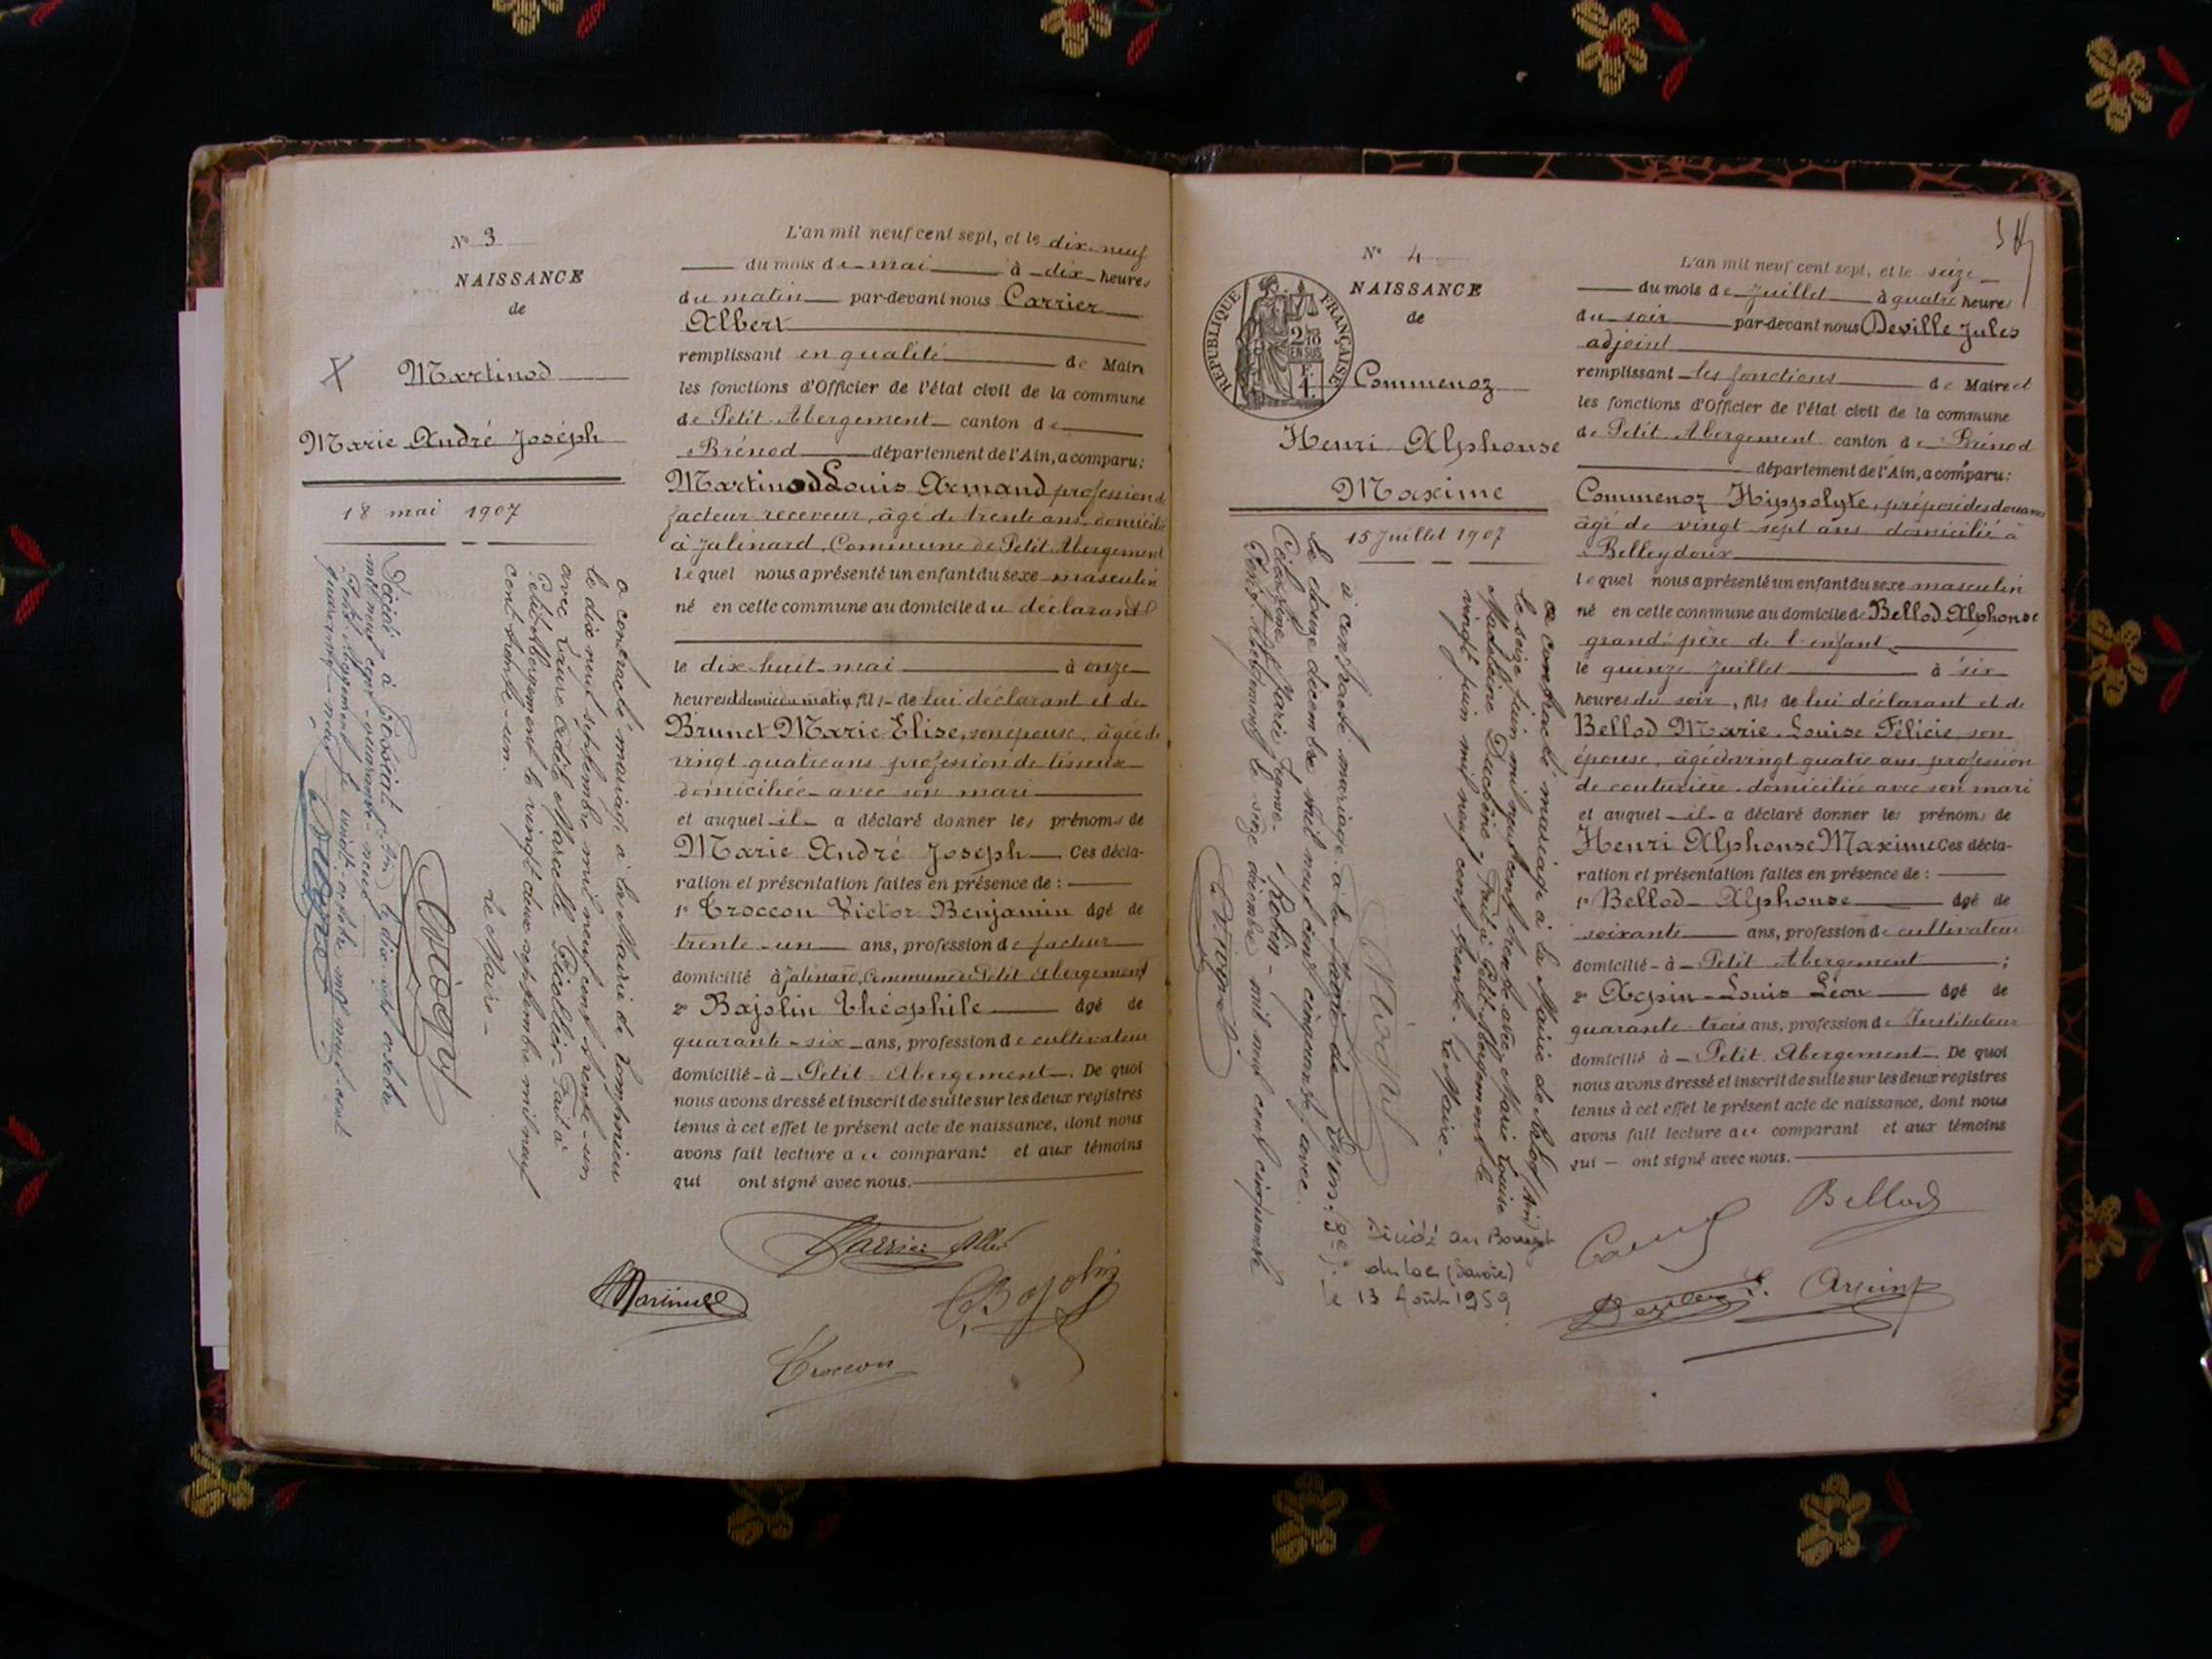 N° 3
NAISSANCE
de
Martinod
Marie André Joséph
18 mai 1907
a contracté mariage à la Mairie de Lompnieu
le dix neuf septembre mil neuf cent trente-un
avec Laure Adèle Marcelle Picollier - Fait à
Petit-Abergement le vingt deux septembre mil neuf
cent trente-un.
Le Maire -
Décédé à
mil neuf cent quarante-neuf
Petit Abergement le vingt octobre mil neuf cent
quarante-neuf
L'an mil neuf cent sept, et le dix-neuf
du mois de mai à dix heures
du matin par-devant nous Carrier
Albert
remplissant en qualité de Maire
les fonctions d'Officier de l'état civil de la commune
de Petit Abergement canton de
Brénod département de l'Ain, a comparu:
Martinod Louis Armand profession de
facteur receveur, âgé de trente ans, domicilié
à Jalinard, Commune de Petit Abergement
lequel nous a présenté un enfant du sexe masculin
né en cette commune au domicile du déclarant
le dix-huit mai à onze
heures et demie du matin, fils de lui déclarant et de
Brunet Marie Elise, son épouse, âgée de
vingt quatre ans profession de tisseuse
domiciliée avec son mari
et auquel il a déclaré donner les prénoms de
Marie André Joseph Ces décla-
ration et présentation faites en présence de :
1° Troccon Victor Benjamin âgé de
trente-un ans, profession de facteur
domicilié à Jalinard, Commune de Petit Abergement
2° Bajolin Théophile âgé de
quarante-six ans, profession de cultivateur
domicilié à Petit Abergement. De quoi
nous avons dressé et inscrit de suite sur les deux registres
tenus à cet effet le présent acte de naissance, dont nous
avons fait lecture au comparant et aux témoins
qui ont signé avec nous.
Carrier Albt
Martinod
Bajolin
Troccon
N° 4
NAISSANCE
de
REPUBLIQUE FRANÇAISE
2/10
EN SUS
F.
1.
Commenoz
Henri Alphonse
Maxime
15 Juillet 1907
a contracté mariage à la Mairie de
le seize juin mil neuf cent trente avec Marie Louise
Madeleine - Fait à Petit-Abergement le
vingt juin mil neuf cent trente - Le Maire -
a contracté mariage à la Mairie de Lyon 3e
le douze décembre mil neuf cent cinquante, avec
Marie Jeanne Robin -
Petit Abergement le seize décembre mil neuf cent cinquante
Décédé au Bourget
du lac (Savoie)
le 13 Août 1959.
L'an mil neuf cent sept, et le seize
du mois de Juillet à quatre heures
du soir par-devant nous Deville Jules
adjoint
remplissant les fonctions de Maire et
les fonctions d'Officier de l'état civil de la commune
de Petit Abergement canton de Brénod
département de l'Ain, a comparu:
Commenoz Hippolyte, préposé des douanes
âgé de vingt sept ans domicilié à
Belleydoux
lequel nous a présenté un enfant du sexe masculin
né en cette commune au domicile de Bellod Alphonse
grand-père de l'enfant,
le quinze Juillet à six
heures du soir, fils de lui déclarant et de
Bellod Marie Louise Félicie, son
épouse, âgée de vingt quatre ans profession
de couturière, domiciliée avec son mari
et auquel il a déclaré donner les prénoms de
Henri Alphonse Maxime Ces décla-
ration et présentation faites en présence de :
1° Bellod Alphonse âgé de
soixante ans, profession de cultivateur
domicilié à Petit Abergement ;
2° Arpin Louis Léon âgé de
quarante-trois ans, profession de Instituteur
domicilié à Petit Abergement. De quoi
nous avons dressé et inscrit de suite sur les deux registres
tenus à cet effet le présent acte de naissance, dont nous
avons fait lecture au comparant et aux témoins
qui ont signé avec nous.
Bellod
L. Arpin